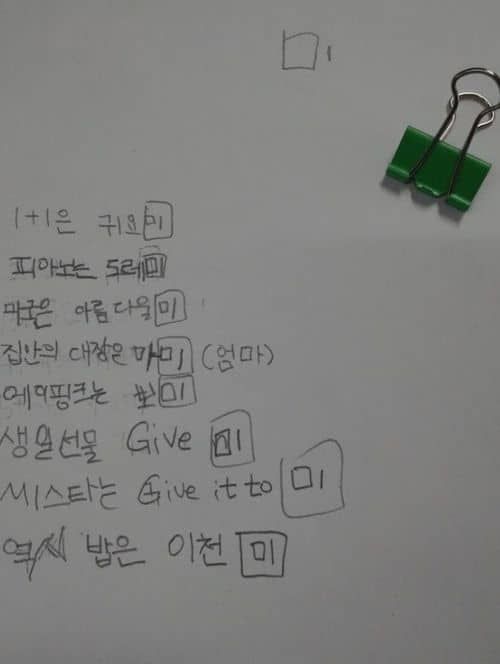 미
1+1은 귀요미
피아노는 도레미
미국은 아름다울미
집안의 대장은 마미 (엄마)
에이핑크는 보미
생일선물 Give 미
씨스타는 Give it to 미
역시 밥은 이천미